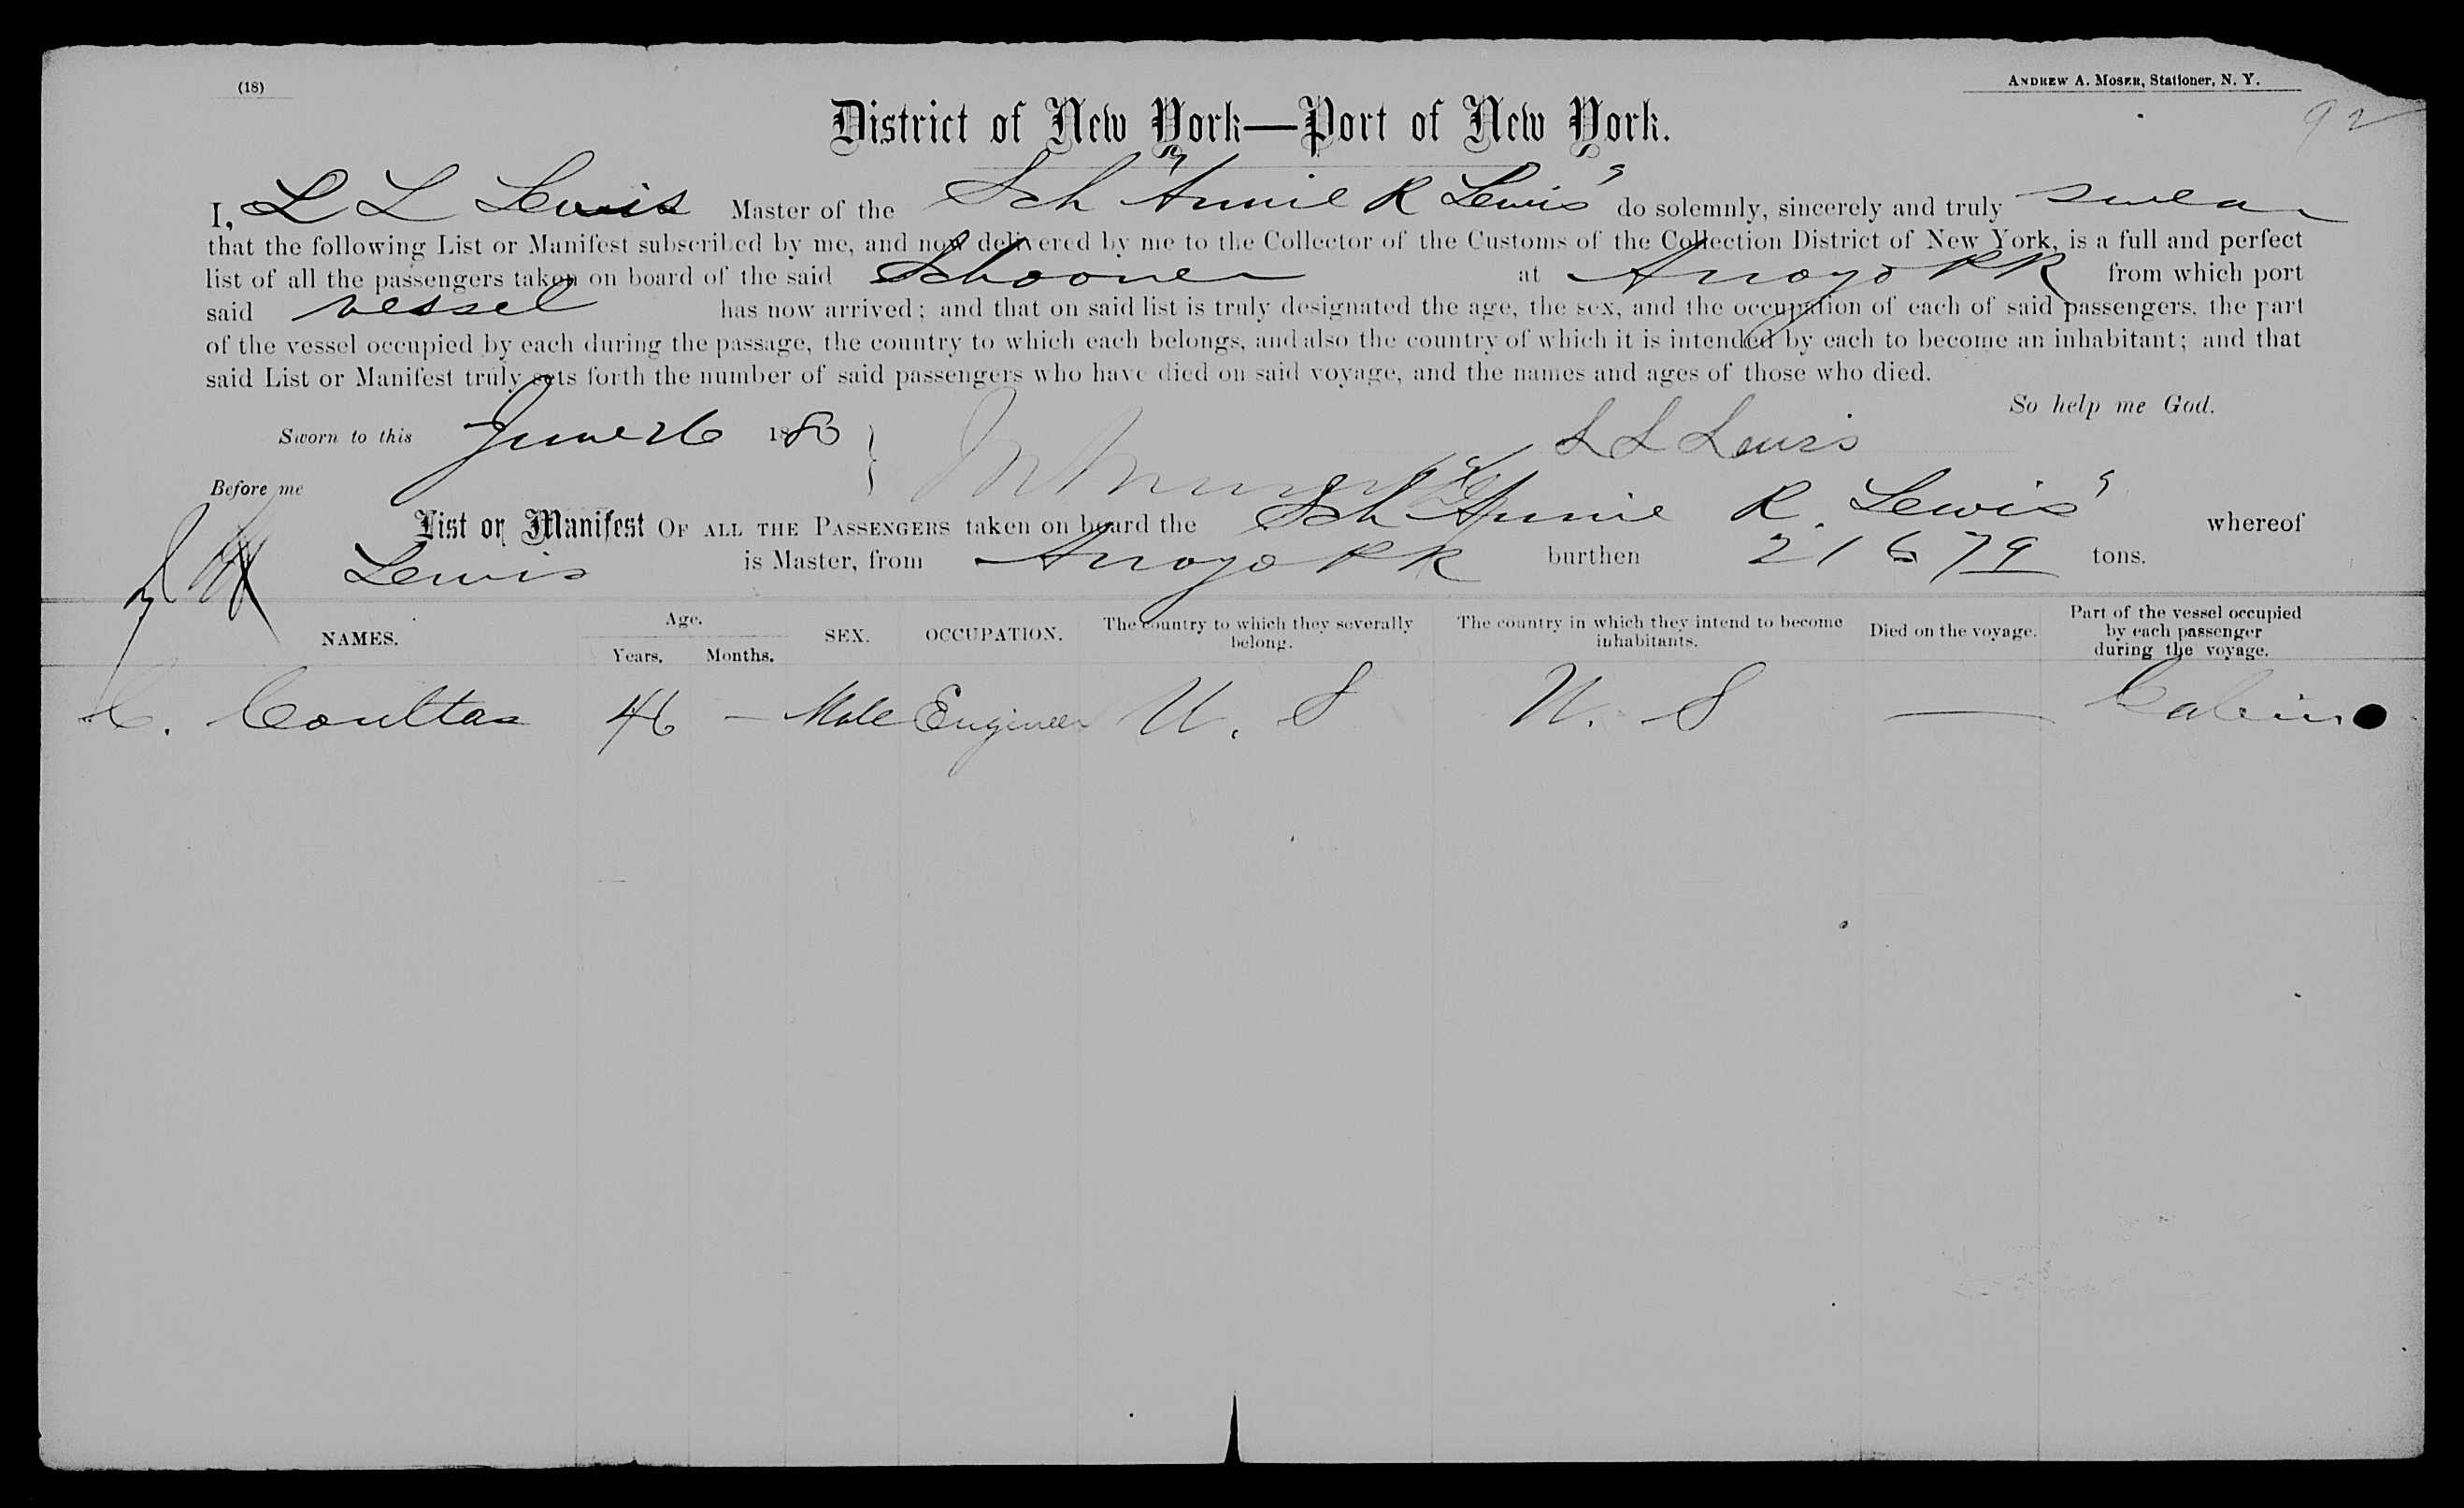 (18)
ANDREW A. MOSER, Stationer, N. Y.
92
District of New York—Port of New York.
I, L L Lewis Master of the Sch "Annie R Lewis" do solemnly, sincerely and truly swear
that the following List or Manifest subscribed by me, and now delivered by me to the Collector of the Customs of the Collection District of New York, is a full and perfect
list of all the passengers taken on board of the said Schooner at Arroyo P R from which port
said vessel has now arrived; and that on said list is truly designated the age, the sex, and the occupation of each of said passengers, the part
of the vessel occupied by each during the passage, the country to which each belongs, and also the country of which it is intended by each to become an inhabitant; and that
said List or Manifest truly sets forth the number of said passengers who have died on said voyage, and the names and ages of those who died.
So help me God.
Sworn to this June 26 1883 L L Lewis
Before me
List or Manifest OF ALL THE PASSENGERS taken on board the Sch "Annie R. Lewis" whereof
Lewis is Master, from Arroyo P R burthen 216 79 tons.
NAMES. Age. Years. Months. SEX. OCCUPATION. The country to which they severally belong. The country in which they intend to become inhabitants. Died on the voyage. Part of the vessel occupied by each passenger during the voyage.
C. Coultas 46 — Male Engineer U. S U. S — Cabin